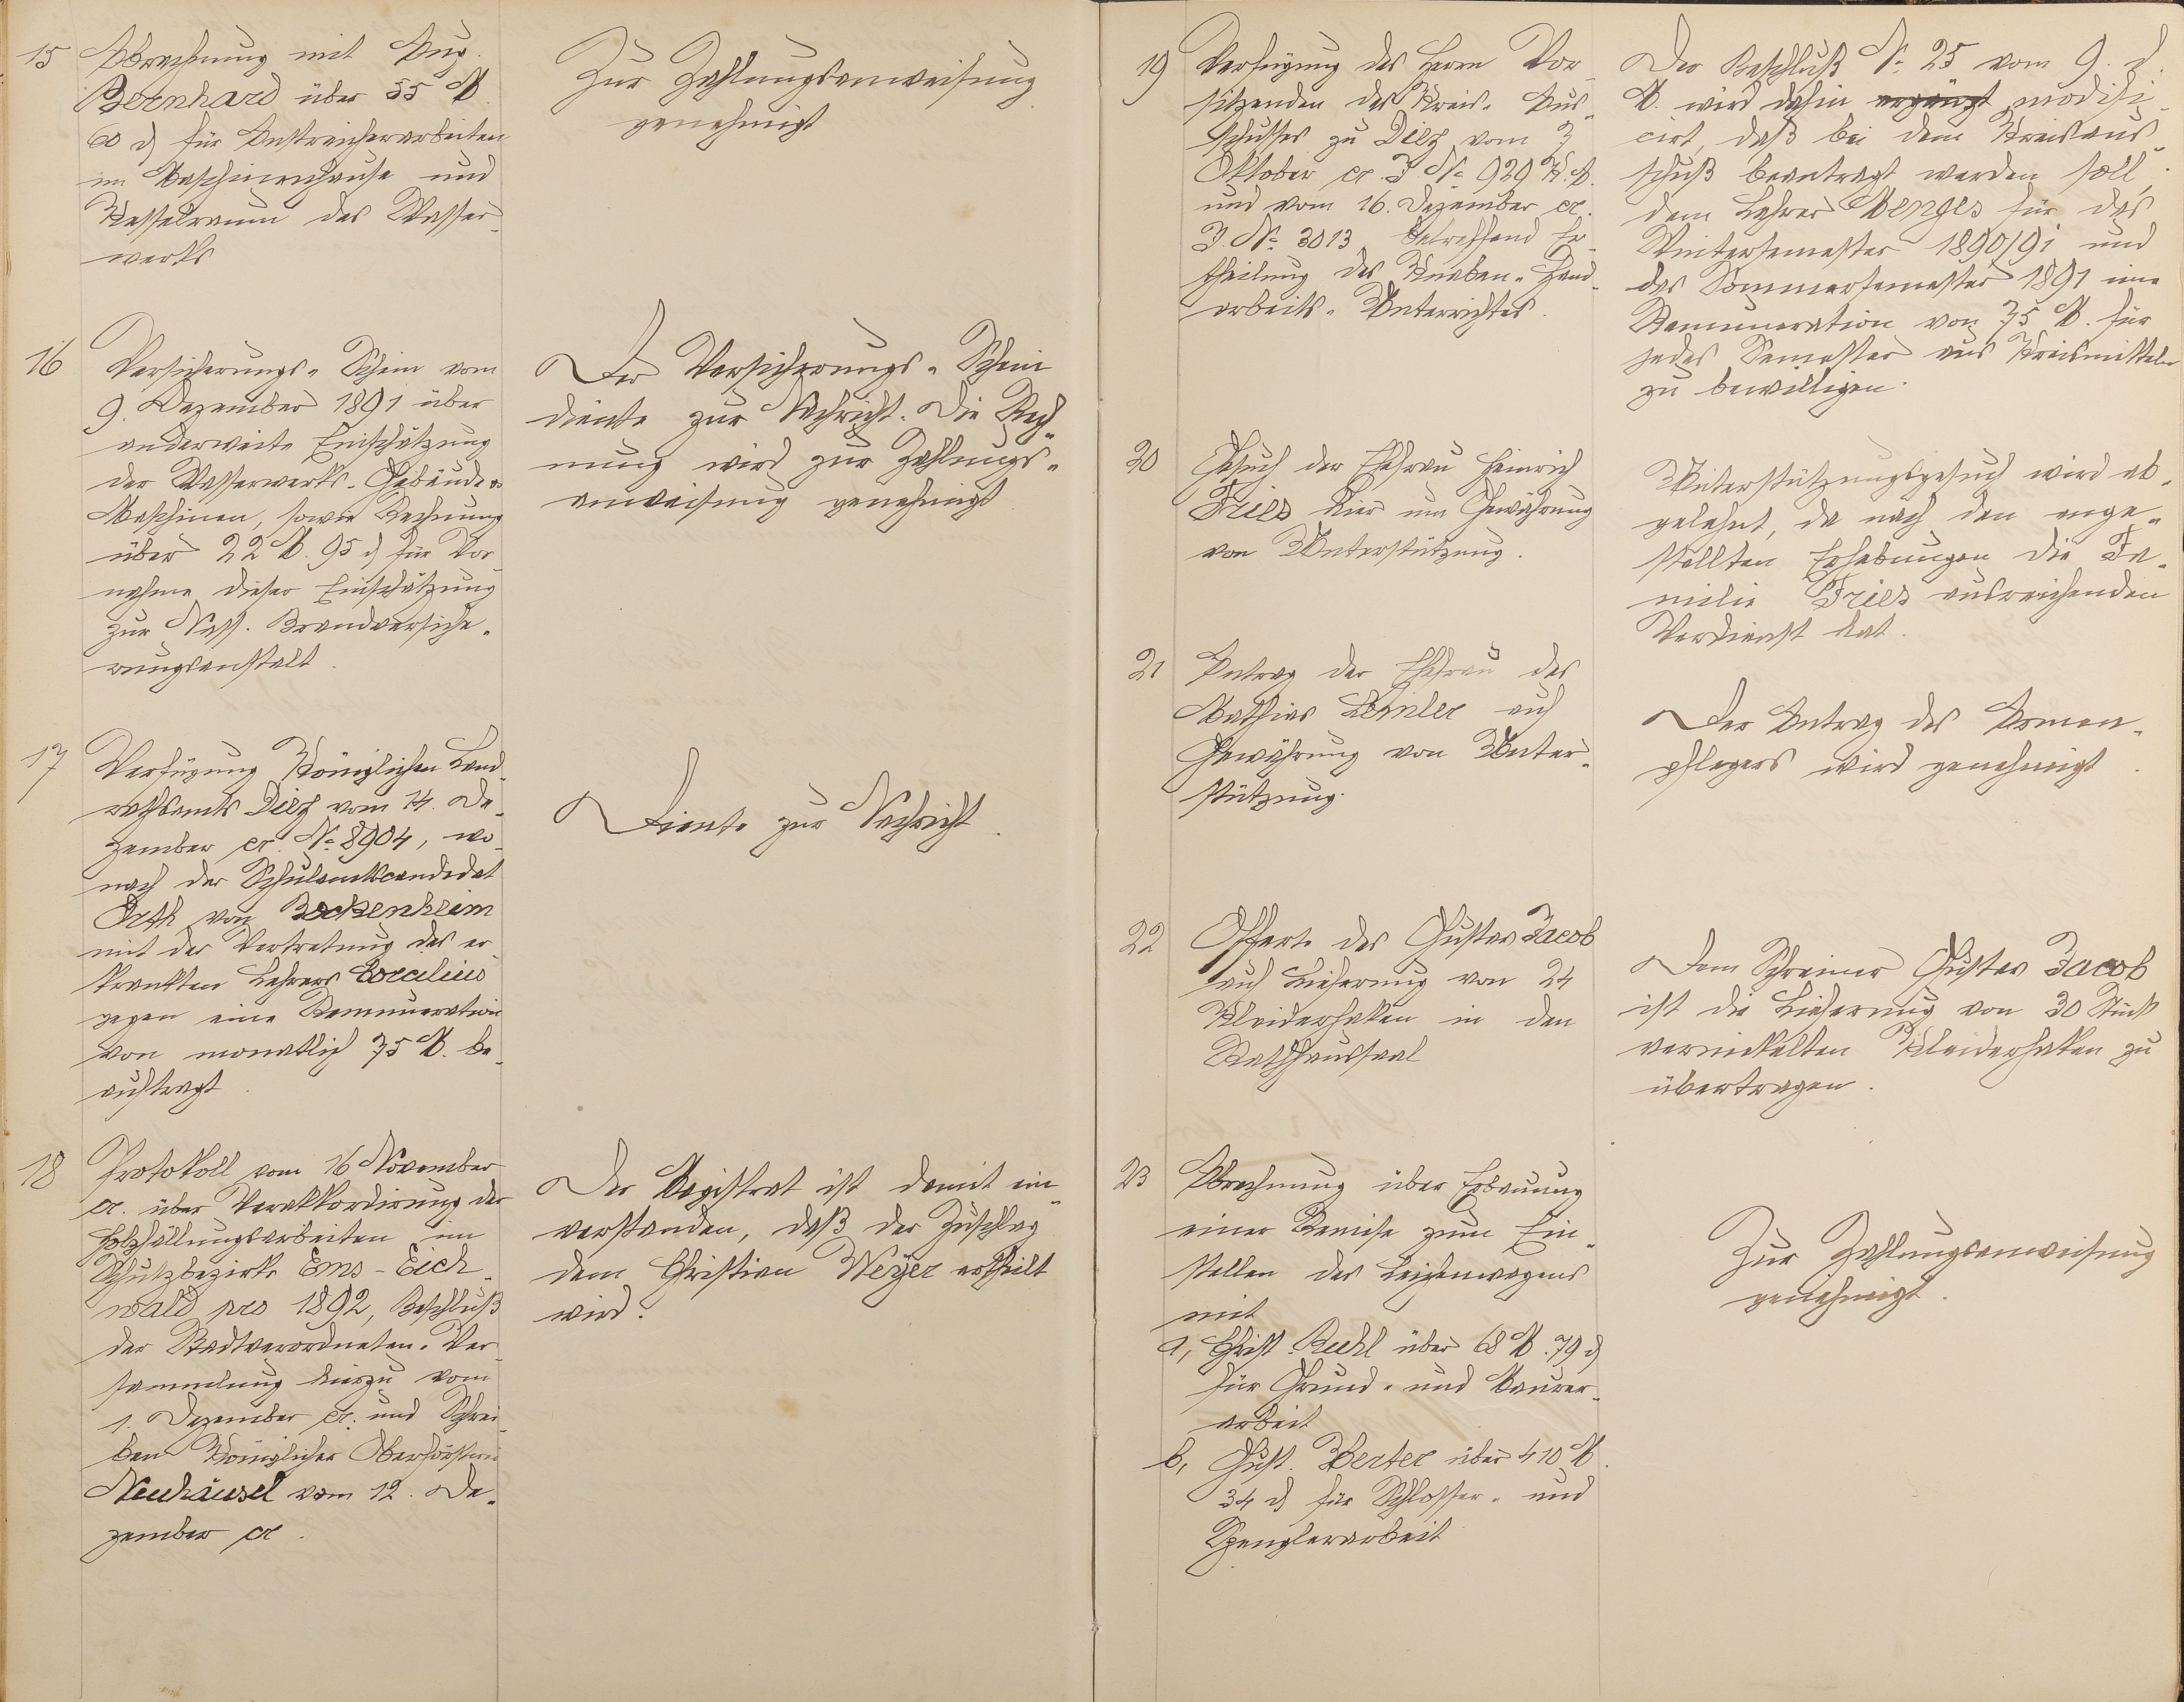 15
Abrechnung mit Aug.
Bernhard über 55 M.
60 d für Anstreicherarbeiten
im Maschinenhause und
Kesselraum des Wasser-
werks
Zur Zahlungsanweisung
genehmigt
16
Versicherungs-Schein vom
9. Dezember 1891 über
anderweite Einschätzung
der Wasserwerks-Gebäude u.
Maschinen, sowie Rechnung
über 22 M. 95 d für Vor-
nahme dieser Einschätzung
zur Nass. Brandversiche-
rungsanstalt.
Der Versicherungs-Schein
diente zur Nachricht. Die Rech-
nung wird zur Zahlungs-
anweisung genehmigt
17
Verfügung Königlichen Land-
rathsamts Diez vom 14. De-
zember cr. No 8904, wo-
nach der Schulamtscandidat
Orth von Bockenheim
mit der Vertretung des er-
krankten Lehrers Corcilius
gegen eine Remuneration
von monatlich 75 M. be-
auftragt.
Diente zur Nachricht.
18
Protokoll vom 16 November
cr. über Verakkordirung der
Holzfällungsarbeiten im
Schutzbezirke Ems-Eich-
wald pro 1892, Beschluß
der Stadtverordneten-Ver-
sammlung hierzu vom
1. Dezember cr. und Schrei-
ben Königlicher Oberförsterei
Neuhäusel vom 12. De-
zember cr.
Der Magistrat ist damit ein-
verstanden, daß der Zuschlag
dem Christian Weyer ertheilt
wird.
19
Verfügung des Herrn Vor-
sitzenden des Kreis-Aus-
schusses zu Diez vom 7
Oktober cr. J. No 929 K.A.
und vom 16. Dezember cr.
J. No 3013 betreffend Er-
theilung des Knaben-Hand-
arbeits-Unterrichtes.
Der Beschluß No 25 vom 9. d.
M. wird dahin ergänzt modifi-
cirt, daß bei dem Kreisaus-
schuß beantragt werden soll,
dem Lehrer Menges für das
Wintersemester 1890/91 und
das Sommersemester 1891 eine
Remuneration von 75 M. für
jedes Semester aus Kreismitteln
zu bewilligen.
20
Gesuch der Ehefrau Heinrich
Fries hier um Gewährung
von Unterstützung.
Unterstützungsgesuch wird ab-
gelehnt, da nach den ange-
stellten Erhebungen die Fa-
milie Fries ausreichenden
Verdienst hat.
21
Antrag der Ehefrau des
Mathias Lemler auf
Gewährung von Unter-
stützung.
Der Antrag des Armen-
pflegers wird genehmigt.
22
Offerte des Gustav Jacob
auf Lieferung von 24
Kleiderhaken in den
Rathhaussaal
Dem Schreiner Gustav Jacob
ist die Lieferung von 30 Stück
vernickelten Kleiderhaken zu
übertragen.
23
Abrechnung über Erbauung
einer Remise zum Ein-
stellen des Leichenwagens
mit
a, Christ. Ruhl über 68 M. 79 d
für Grund- und Maurer-
arbeit
b, Gust. Berter über 410 M.
34 d für Schlosser- und
Spenglerarbeit
Zur Zahlungsanweisung
genehmigt.